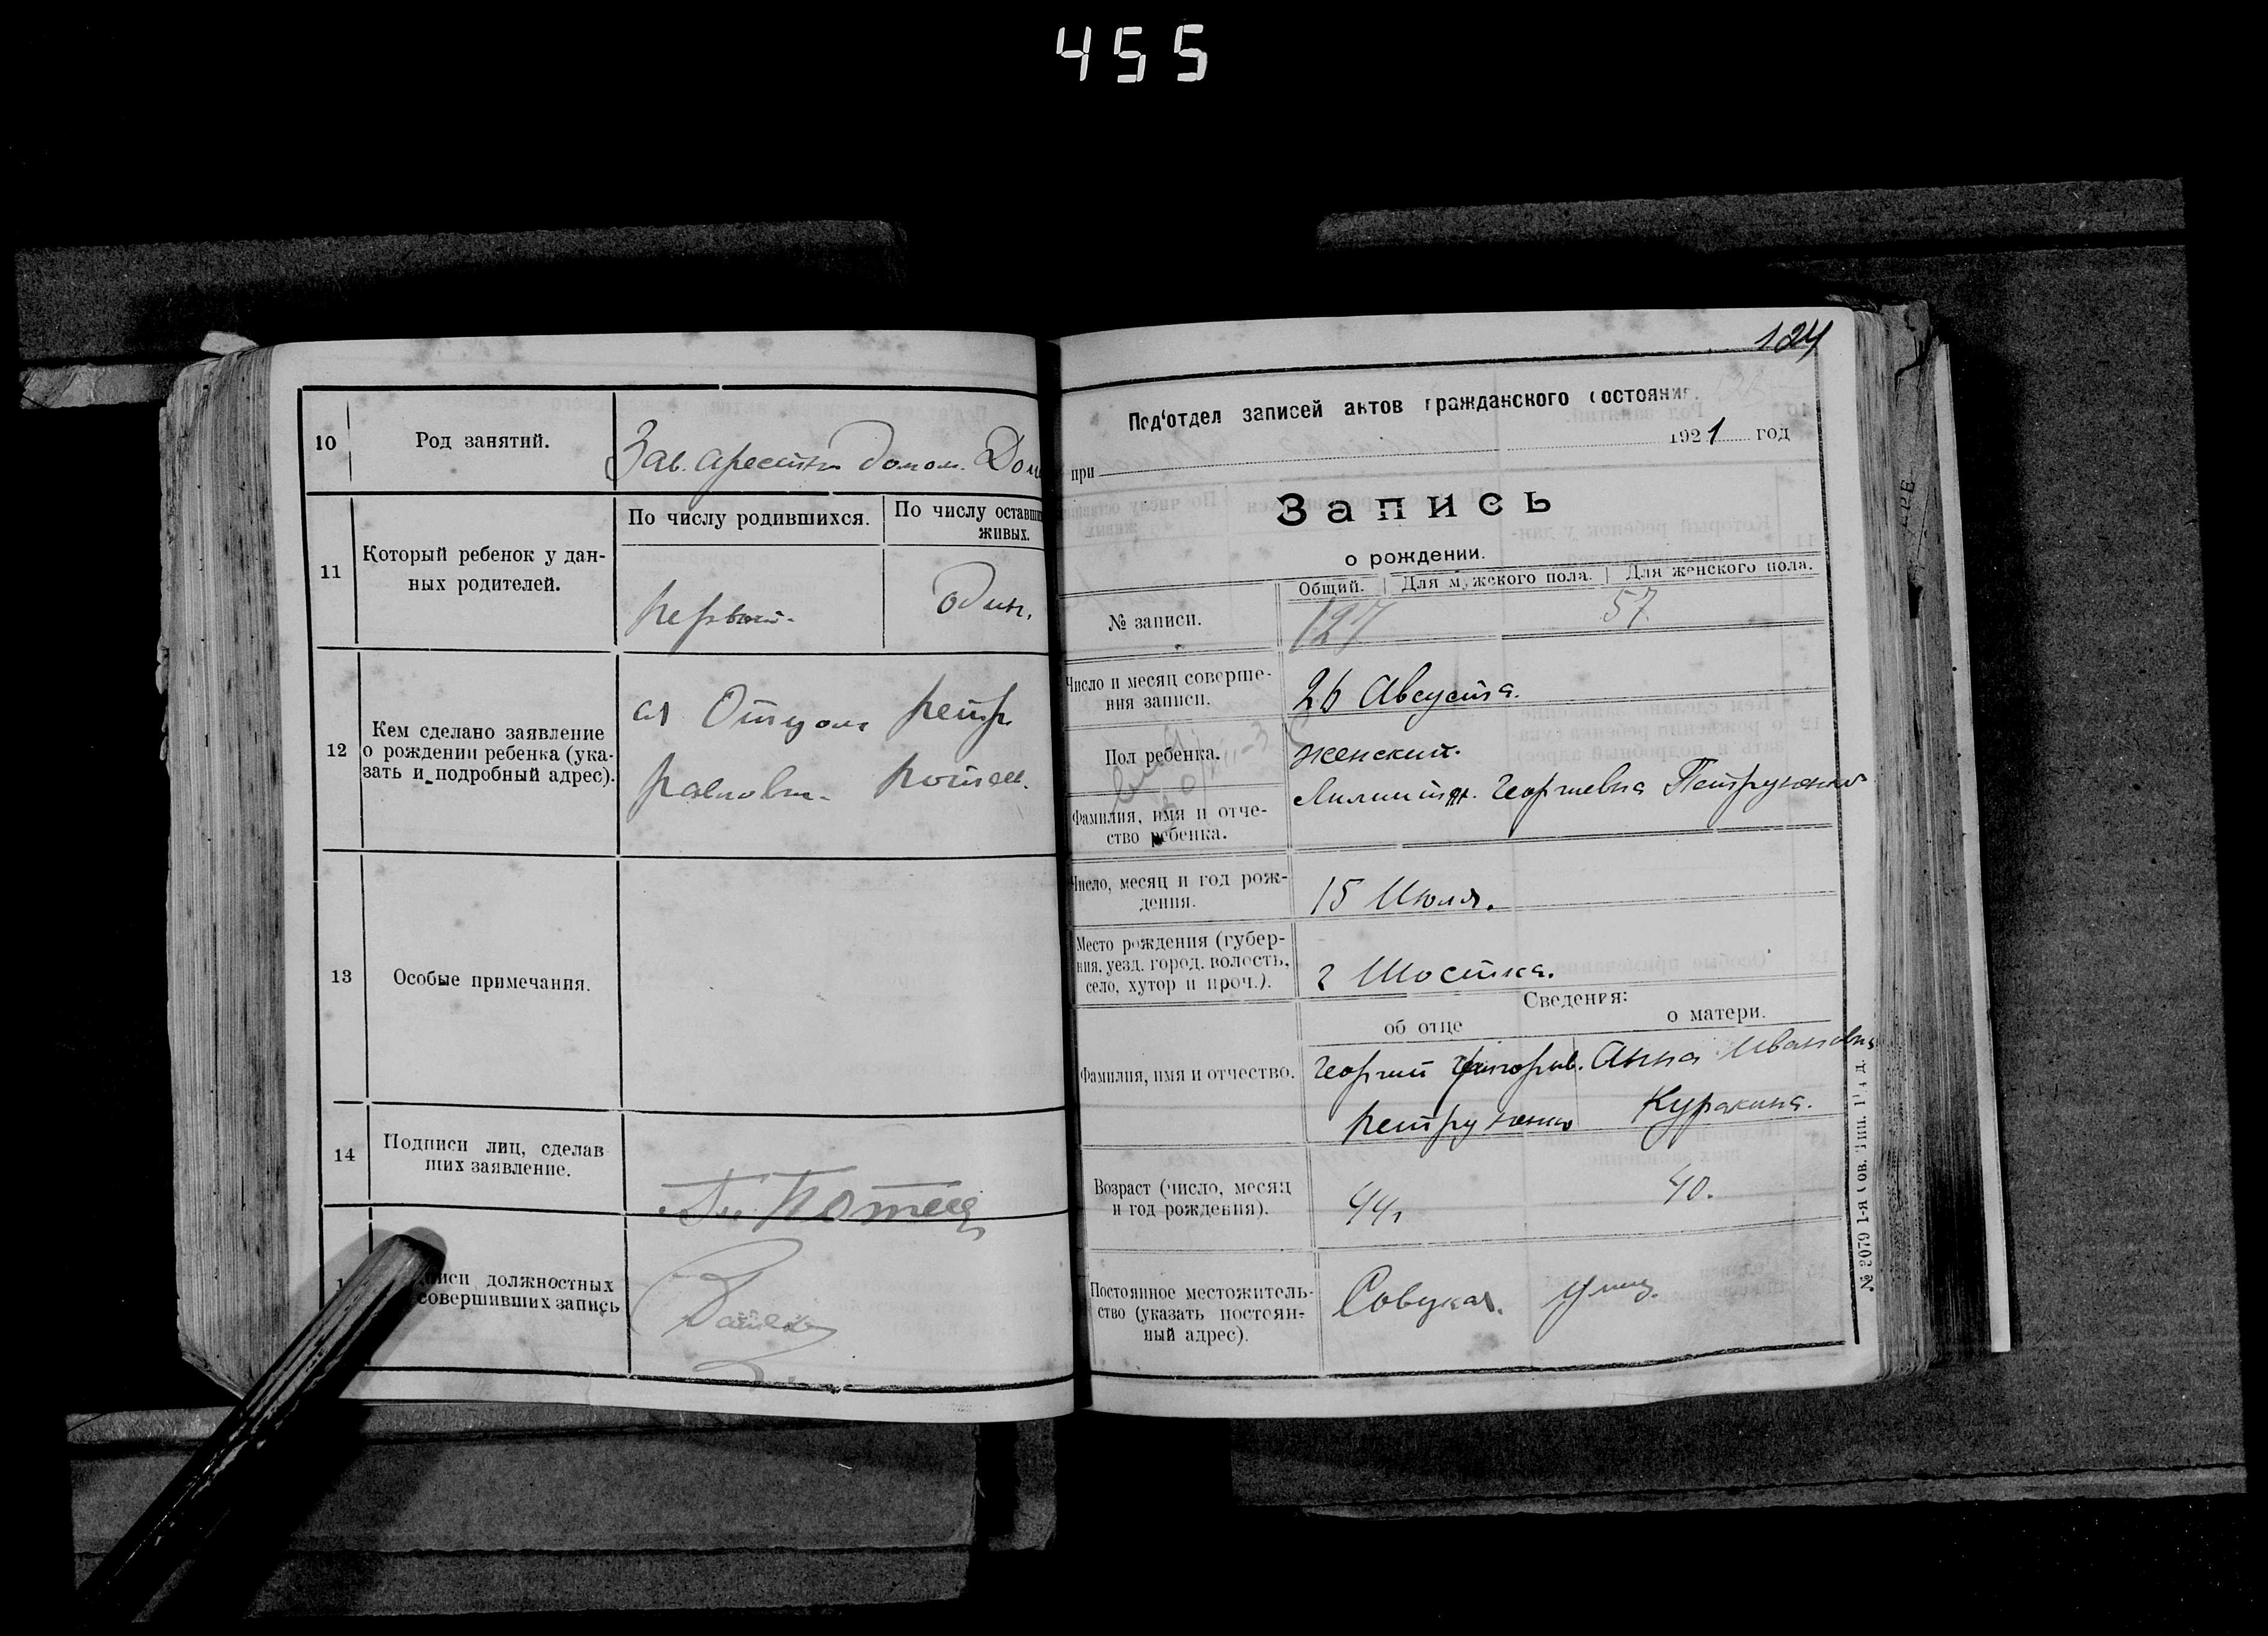 455
10 Род занятий. Зав. арестн. домом. Дом
11 Который ребенок у дан-
ных родителей.
По числу родившихся. По числу оставши
живых.
первый. один.
12 Кем сделано заявление
о рождении ребенка (ука-
зать и подробный адрес).
Отцом петр
13 Особые примечания.
14 Подписи лиц, сделав
ших заявление.
Потец
должностных
совершивших запись
124
Под'отдел записей актов гражданского состояния.
при 1921 год
Запись
о рождении.
Общий. Для мужского пола. Для женского пола.
№ записи. 127 57
Число и месяц соверше-
ния записи. 26 Августа.
Пол ребенка. женский.
Фамилия, имя и отче-
ство ребенка. Георгиевна Петрунько
Число, месяц и год рож-
дения. 15 Июля.
Место рождения (губер-
ния, уезд, город, волость,
село, хутор и проч.). г Шостка.
Сведения:
об отце о матери.
Фамилия, имя и отчество. Георгий Григорьв. Анна Ивановна
петрунько Куракина.
Возраст (число, месяц
и год рождения). 44 г 40.
Постоянное местожитель-
ство (указать постоян-
ный адрес).
улиц.
№ 2079 1-я Сов. Тип.